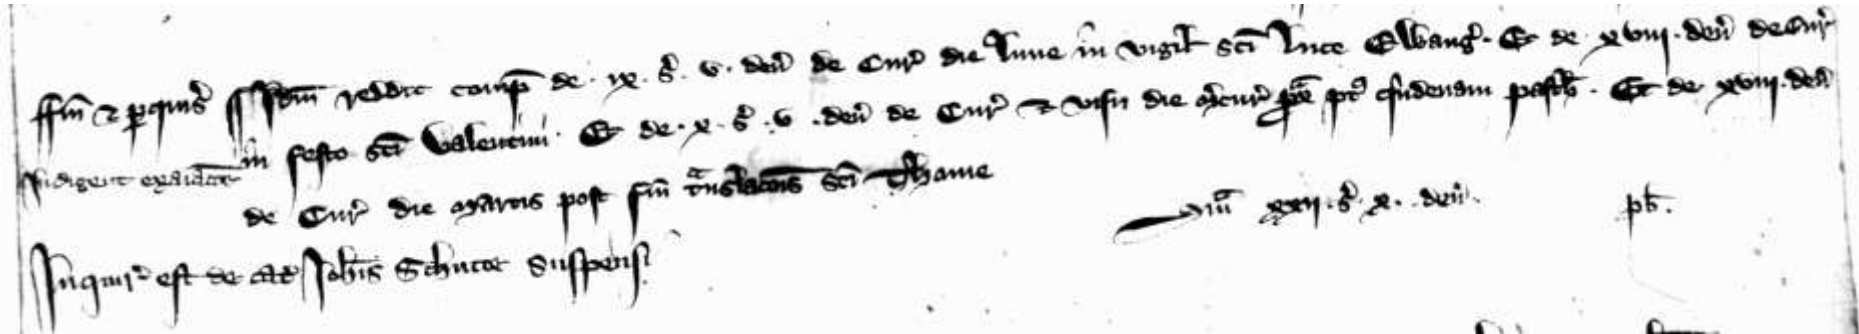 ffin̄ ⁊ ꝑquis̄ Idm̄ reddit comp̄ de · ix · s̄ · v · den̄ de Cur̄ die Lune in vigil̄ sc̄i Luce Ewanḡ · Et de · xviii · den̄ de Cur̄
in festo sc̄i Valentini · Et de · x · s̄ · v · den̄ de Cur̄ ⁊ visu die Mercur̄ px̄ pt̄ pasch̄ · Et de xviii · den̄
Indigent
de Cur̄ die Martis post fm̄ tᵃnslacōis sc̄i Thome Sm̄ᵃ xxii · s̄ · x · den̄ · pb̄ ·
Inquir̄ est de cat̄ Joh̄is Schutte suspens̄